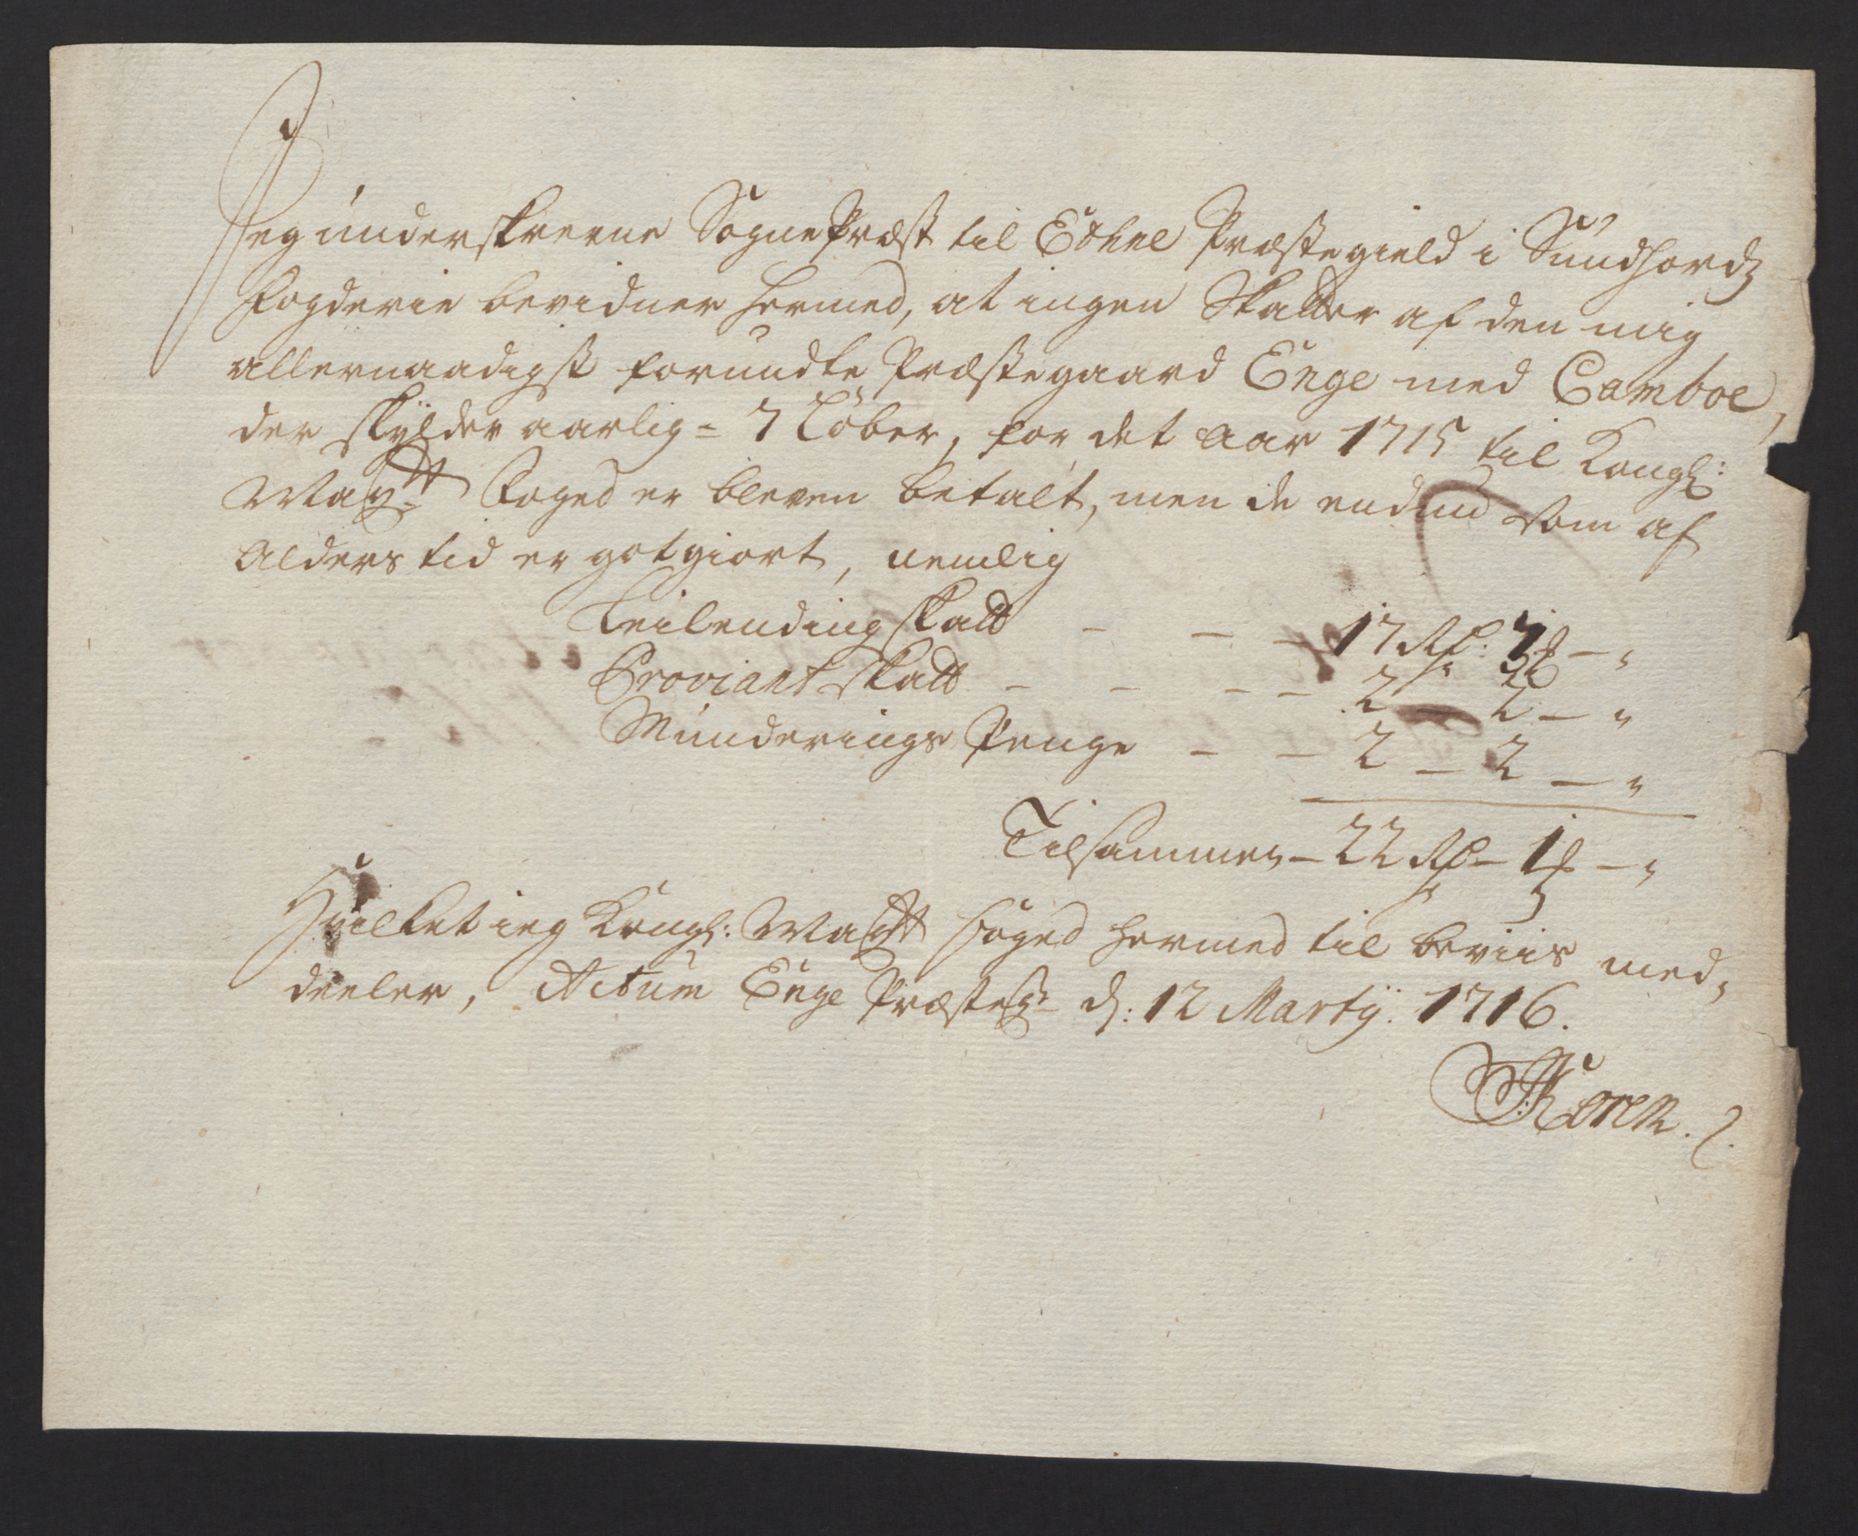 Jeg underskrevne SognePræst til Ethne Præstegield i Sundhordz
Fogderie bevidner hermed, at ingen Skatter af den mig
allernaadigst forundte Præstegaard Enge med Camboe,
der skylder aarlig = 7 Löber, for det Aar 1715 til Kongl:
Mayᵗˢ Foged er bleven betalt, men de endnu som af
Alders tid er gotgiort, nemlig
Leilending skatt - - - 17 Rd: 3 ß - "
Proviant skatt - - - - 2 - 2 - "
Munderings Penge - - 2 - 2 - "
Tilsammen - 22 Rd - 1 ß - "
Hvilket ieg Kongl: Mayᵗˢ foged hermed til beviis med,
deeler, Actum Enge Præsteg: d: 12 Martij. 1716.
Koren.